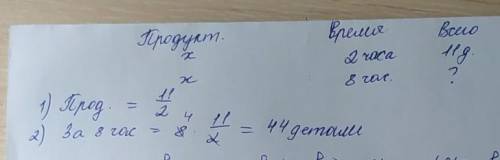 Продукт. Время Всего
x 2 часа 11 д.
x 8 час. ?
1) Прод. = 11/2
2) За 8 час = 8 4 · 11/2 = 44 детали